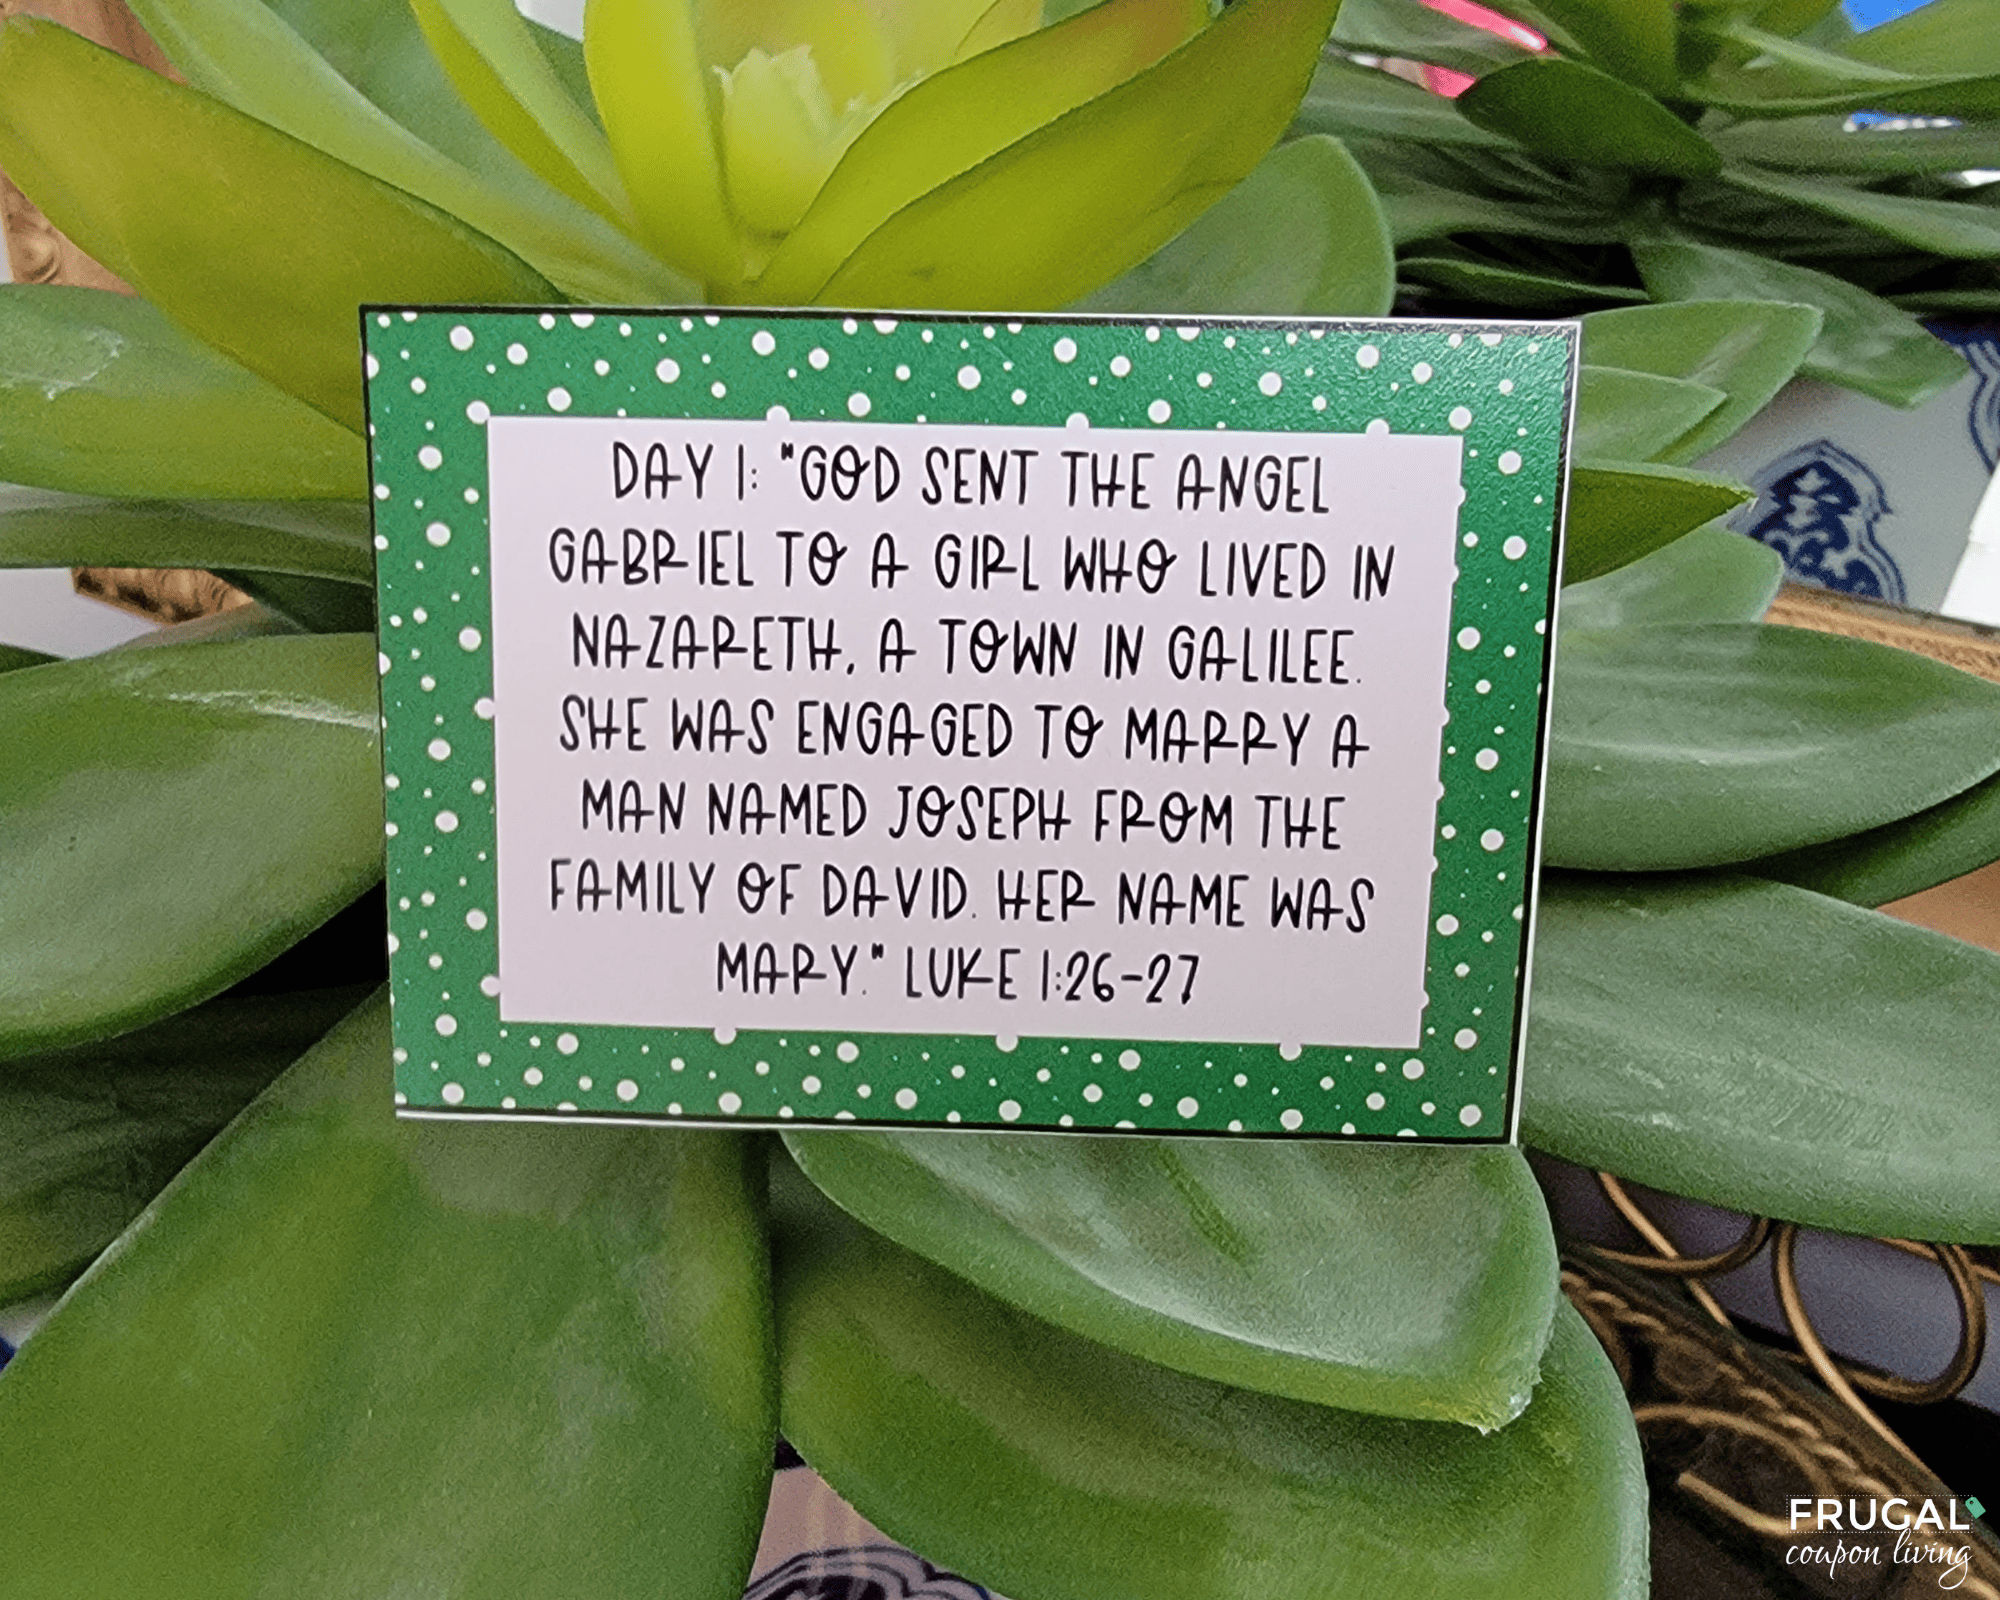 DAY 1: "GOD SENT THE ANGEL
GABRIEL TO A GIRL WHO LIVED IN
NAZARETH, A TOWN IN GALILEE.
SHE WAS ENGAGED TO MARRY A
MAN NAMED JOSEPH FROM THE
FAMILY OF DAVID. HER NAME WAS
MARY." LUKE 1:26-27
FRUGAL
coupon living